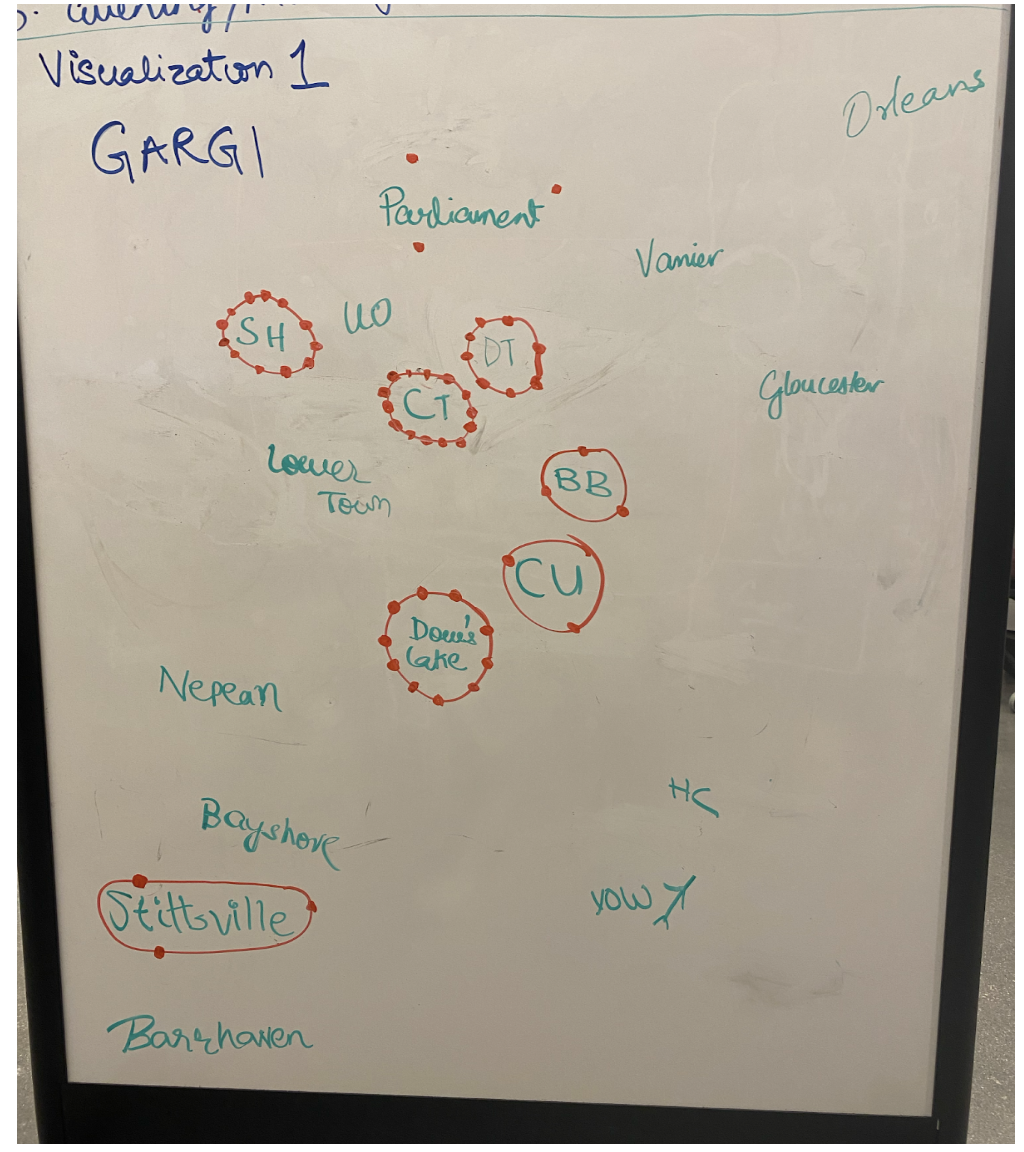 Visualization 1
GARGI
Orleans
Parliament
Vanier
SH
UO
DT
CT
Gloucester
Lower
Town
BB
CU
Dow's
Lake
Nepean
HC
Bayshore
Stittsville
YOW
Barrhaven